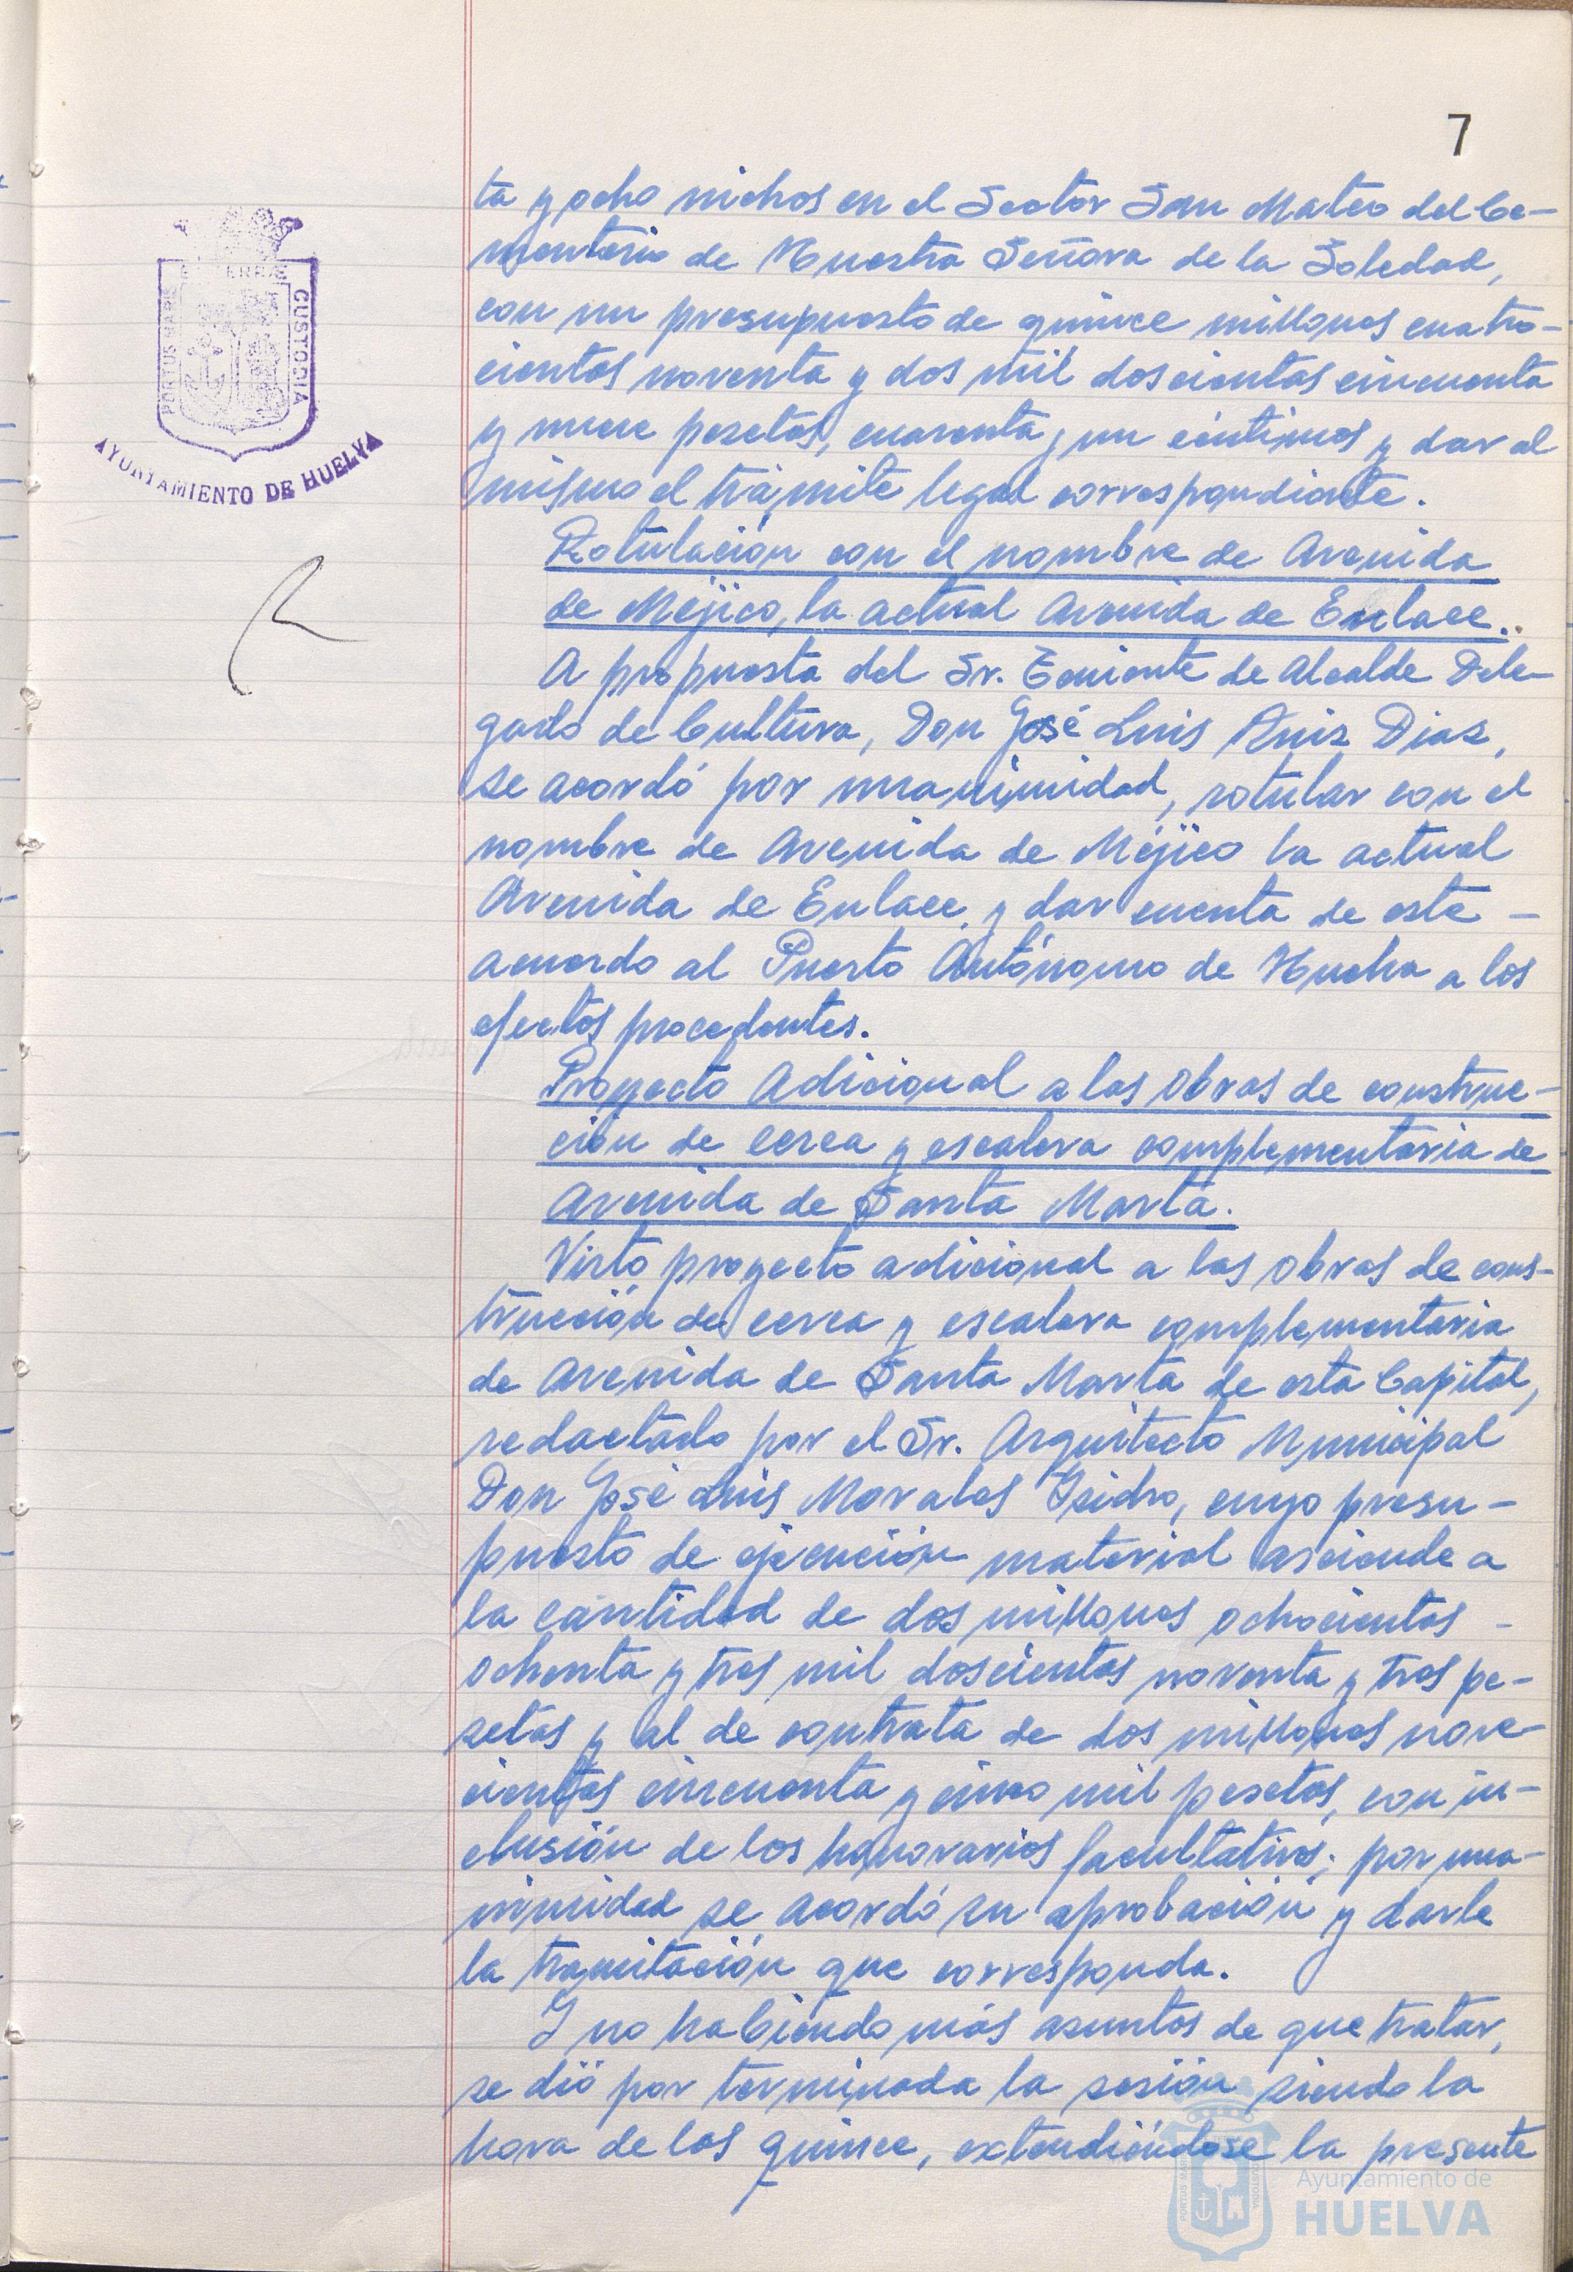 7
ta y ocho nichos en el Sector San Mateo del Ce-
menterio de Nuestra Señora de la Soledad,
con un presupuesto de quince millones cuatro-
cientas noventa y dos mil doscientas cincuenta
y nueve pesetas, cuarenta y un céntimos y dar al
mismo el trámite legal correspondiente.
Rotulación con el nombre de Avenida
de Méjico, la actual Avenida de Enlace.
A propuesta del Sr. Teniente de Alcalde Dele-
gado de Cultura, Don José Luis Ruiz Diaz,
se acordó por unanimidad, rotular con el
nombre de Avenida de Méjico la actual
Avenida de Enlace y dar cuenta de este -
acuerdo al Puerto Autónomo de Huelva a los
efectos procedentes.
Proyecto Adicional a las obras de construc-
ción de cerca y escalera complementaria de
Avenida de Santa Marta.
Visto proyecto adicional a las obras de cons-
trucción de cerca y escalera complementaria
de Avenida de Santa Marta de esta Capital,
redactado por el Sr. Arquitecto Municipal
Don José Luis Morales Ysidro, cuyo presu-
puesto de ejecución material asciende a
la cantidad de dos millones ochocientas -
ochenta y tres mil doscientas noventa y tres pe-
setas y al de contrata de dos millones nove-
cientas cincuenta y cinco mil pesetas, con in-
clusión de los honorarios facultativos; por una-
nimidad se acordó su aprobación y darle
la tramitación que corresponda.
Y no habiendo más asuntos de que tratar,
se dió por terminada la sesión siendo la
hora de las quince, extendiéndose la presente
PORTUS MARIS
CUSTODIA
AYUNTAMIENTO DE HUELVA
Ayuntamiento de
HUELVA